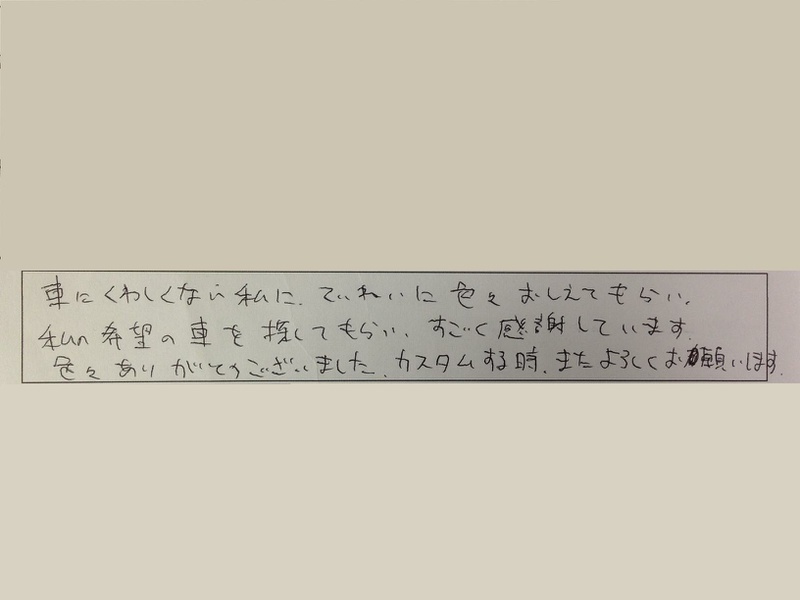 車にくわしくない私に、ていねいに色々おしえてもらい、
私の希望の車を探してもらい、すごく感謝しています。
色々ありがとうございました。カスタムする時、またよろしくお願いします。